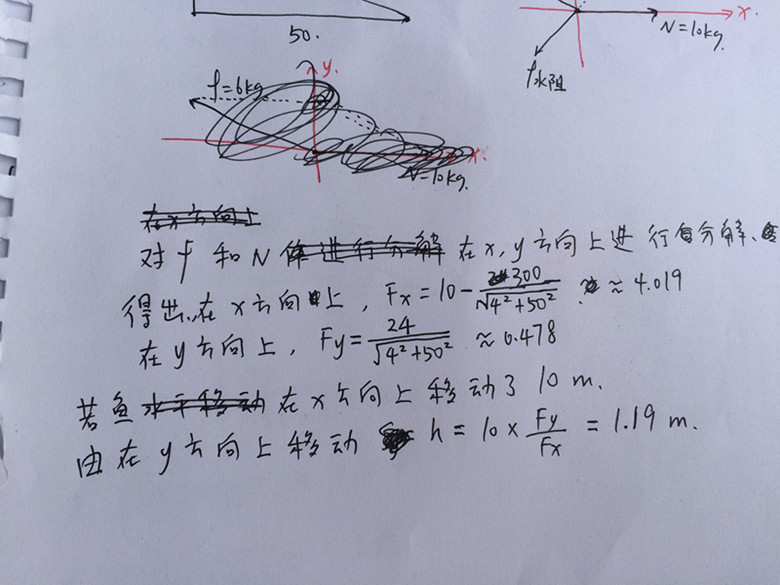 50.
x.
N=10kg.
f水阻
y.
f=6kg
x.
N=10kg.
在x方向上
对f和N 进行分解 在x,y方向上进行分解、
得出,在x方向上, Fx = 10 - 300/√4²+50² ≈ 4.019
在y方向上, Fy = 24/√4²+50² ≈ 0.478
若鱼 水平移动 在x方向上移动了 10 m.
由在y方向上移动 h = 10 × Fy/Fx = 1.19 m.